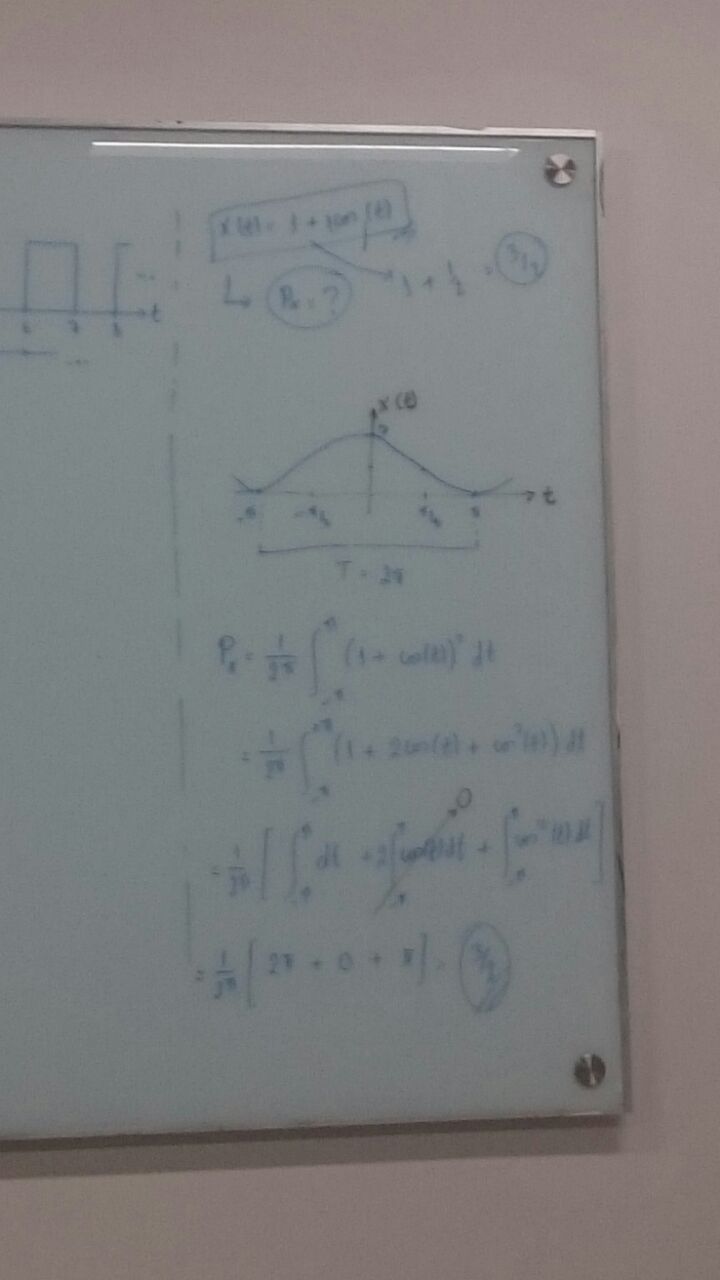 x(t) = 1 + 1cos(t)
↳ Px = ? → 1 + 1/2 = 3/2
... t
6 7 8
...
x(t)
2
t
-π -π/2 π/2 π
T = 2π
Px = 1/2π ∫_{-π}^{π} (1 + cos(t))² dt
= 1/2π ∫_{-π}^{+π} (1 + 2cos(t) + cos²(t)) dt
= 1/2π [ ∫_{-π}^{π} dt + 2∫_{-π}^{π} cos(t)dt + ∫_{-π}^{π} cos²(t)dt ]
0
= 1/2π [ 2π + 0 + π ] = 3/2